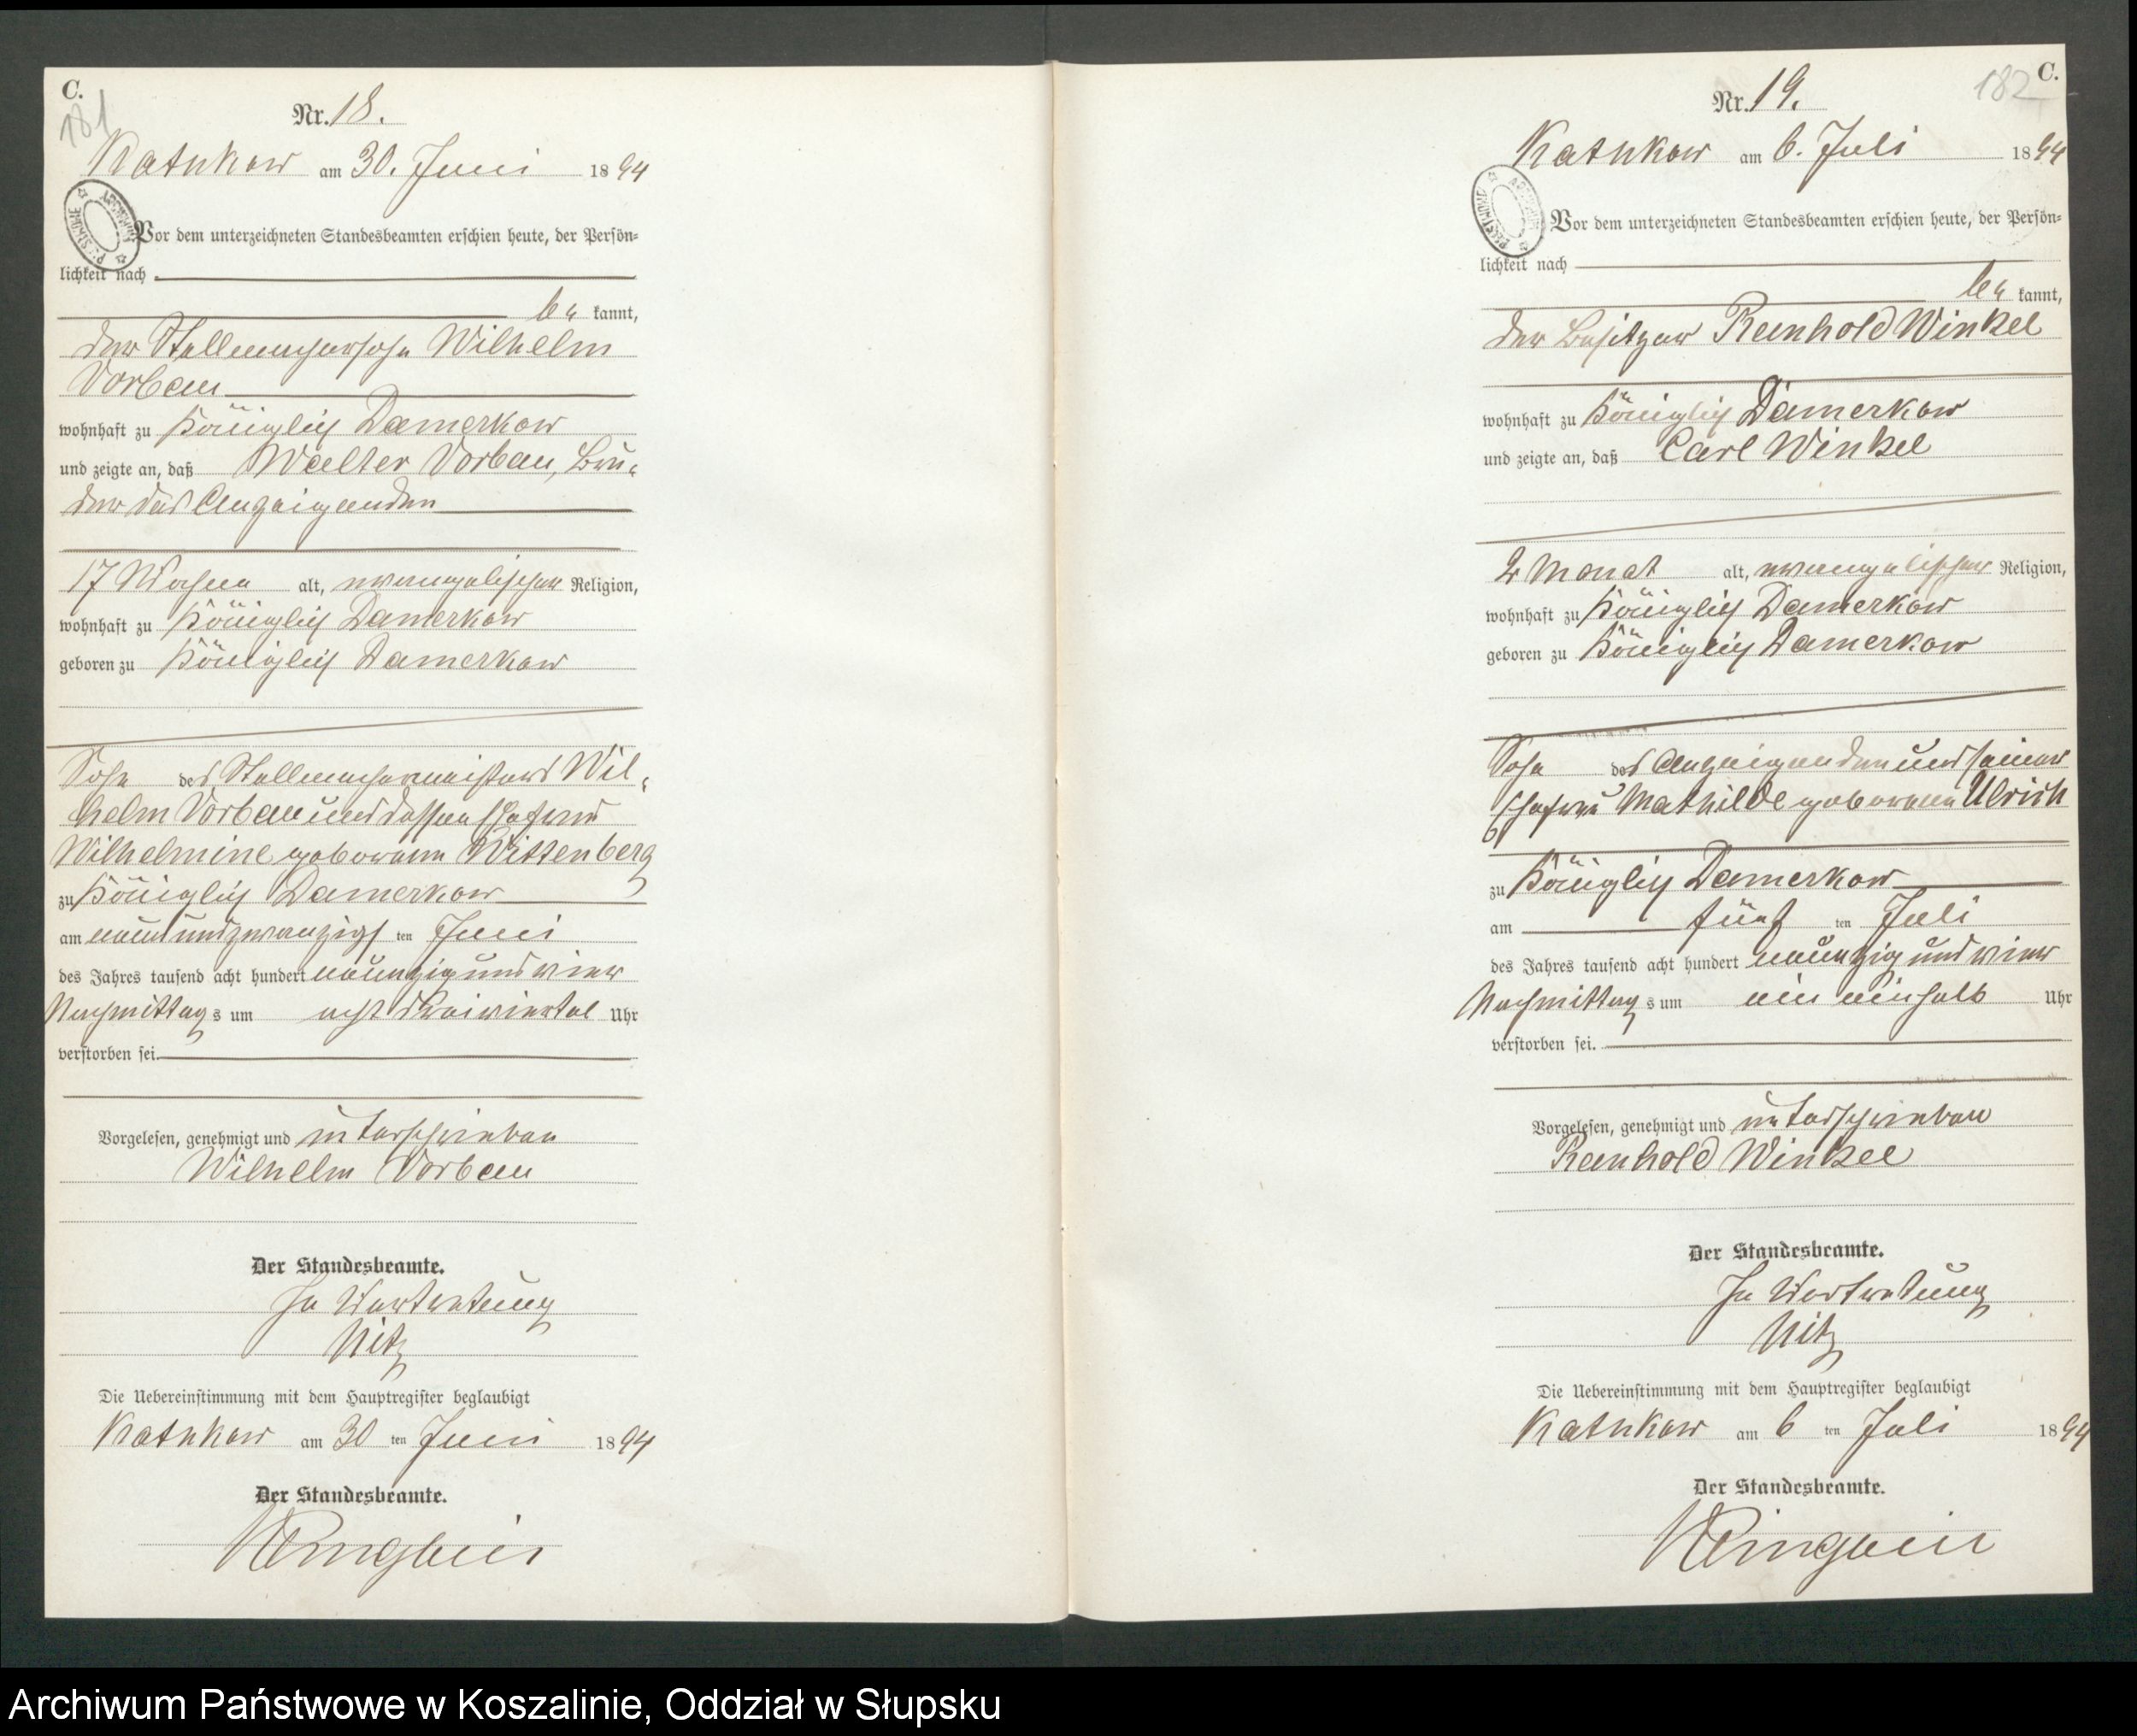 C.
181
Nr. 18.
Katkow am 30. Juni 1894
Vor dem unterzeichneten Standesbeamten erschien heute, der Persön-
lichkeit nach
be kannt,
der Stellmachersohn Wilhelm
Vorbau
wohnhaft zu Königlich Damerkow
und zeigte an, daß Walter Vorbau, Bru-
der des Anzeigenden
17 Wochen alt, evangelischer Religion,
wohnhaft zu Königlich Damerkow
geboren zu Königlich Damerkow
Sohn des Stellmachermeisters Wil-
helm Vorbau und dessen Ehefrau
Wilhelmine geborenen Wittenberg
zu Königlich Damerkow
am neunundzwanzigsten Juni
des Jahres tausend acht hundert neunzig und vier
Nachmittags um acht dreiviertel Uhr
verstorben sei.
Vorgelesen, genehmigt und unterschrieben
Wilhelm Vorbau
Der Standesbeamte.
In Vertretung
Nitz
Die Uebereinstimmung mit dem Hauptregister beglaubigt
am 30 ten Juni 1894
Der Standesbeamte.
182
C.
Nr. 19.
am 6. Juli 1894
Vor dem unterzeichneten Standesbeamten erschien heute, der Persön-
lichkeit nach
be kannt,
der Besitzer Reinhold Winkel
wohnhaft zu Königlich Damerkow
und zeigte an, daß Carl Winkel
2 Monat alt, evangelischer Religion,
wohnhaft zu Königlich Damerkow
geboren zu Königlich Damerkow
Sohn des Anzeigenden und seiner
Ehefrau Mathilde geborenen Ulrich
zu Königlich Damerkow
am fünf ten Juli
des Jahres tausend acht hundert neunzig und vier
Nachmittags um ein einhalb Uhr
verstorben sei.
Vorgelesen, genehmigt und unterschrieben
Reinhold Winkel
Der Standesbeamte.
In Vertretung
Nitz
Die Uebereinstimmung mit dem Hauptregister beglaubigt
am 6 ten Juli 1894
Der Standesbeamte.
Archiwum Państwowe w Koszalinie, Oddział w Słupsku